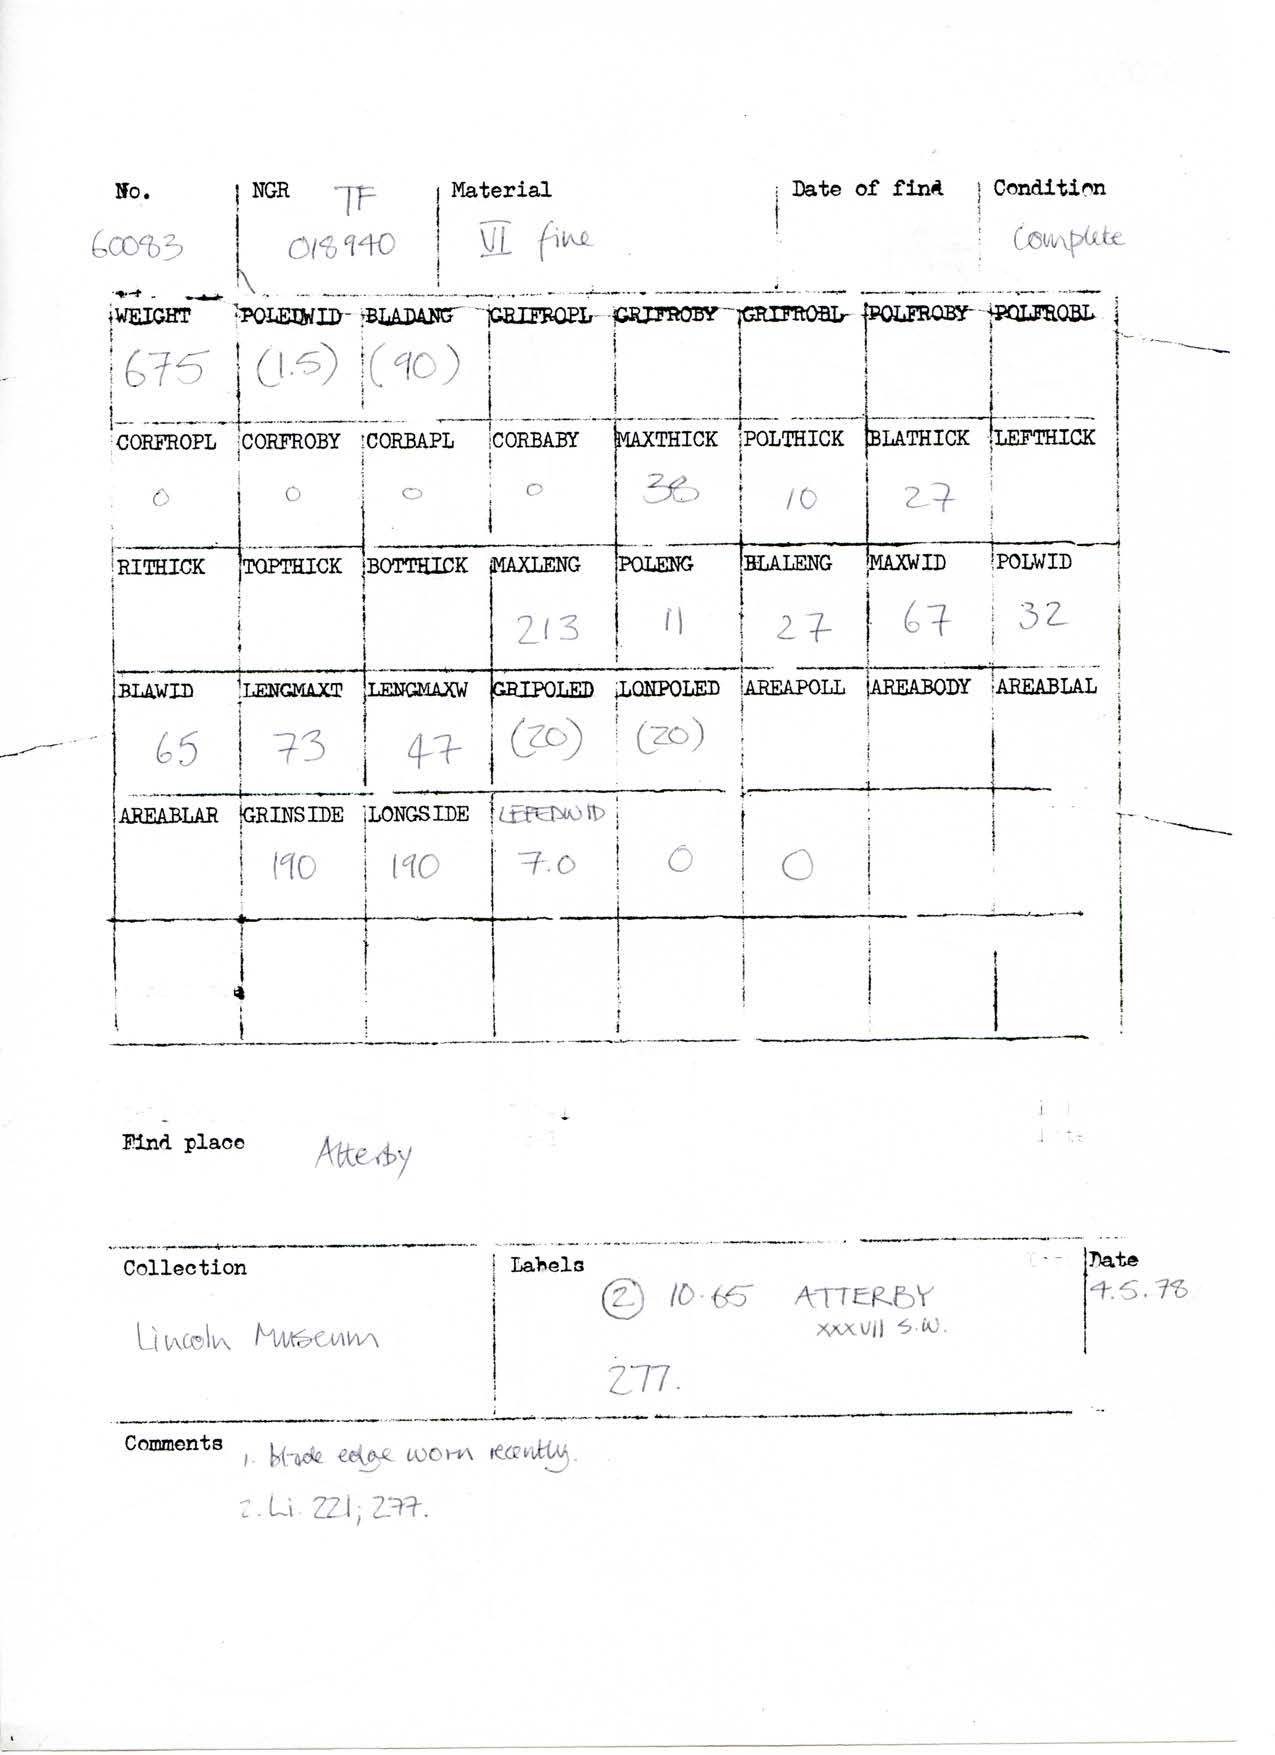 No. NGR TF Material Date of find Condition
60083 018940 VI fine Complete
WEIGHT POLEDWID BLADANG GRIFROPL GRIFROBY GRIFROBL POLFROBY POLFROBL
675 (1.5) (90)
CORFROPL CORFROBY CORBAPL CORBABY MAXTHICK POLTHICK BLATHICK LEFTHICK
0 0 0 0 38 10 27
RITHICK TOPTHICK BOTTHICK MAXLENG POLENG BLALENG MAXWID POLWID
213 11 27 67 32
BLAWID LENGMAXT LENGMAXW GRIPOLED LONPOLED AREAPOLL AREABODY AREABLAL
65 73 47 (20) (20)
AREABLAR GRINSIDE LONGSIDE LEFEDWID
190 190 7.0 0 0
Find place Atterby
Collection Labels Date
② 10.65 ATTERBY 4.5.78
Lincoln Museum XXXVII S.W.
277.
Comments 1. blade edge worn recently.
2. Li. 221; 277.